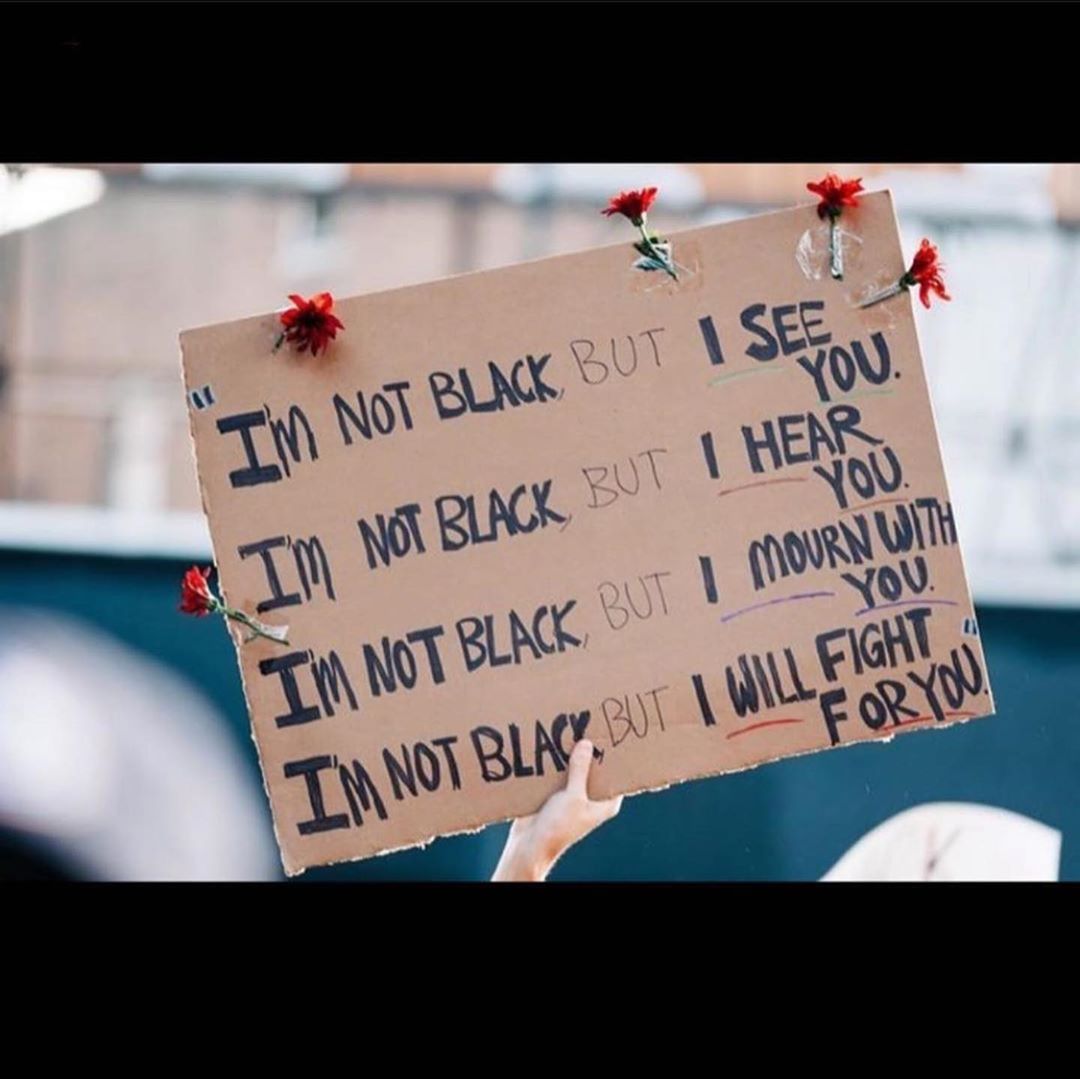 "I'M NOT BLACK, BUT I SEE
YOU.
I'M NOT BLACK, BUT I HEAR
YOU.
I'M NOT BLACK, BUT I MOURN WITH
YOU.
I'M NOT BLACK, BUT I WILL FIGHT
FOR YOU."